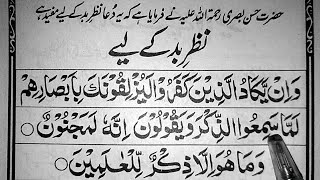 حضرت حسن بصری رحمۃ اللہ علیہ نے فرمایا ہے کہ یہ دُعا نظرِ بد کے لیے مفید ہے
نظرِ بد کے لیے
وَاِنْ يَّكَادُ الَّذِيْنَ كَفَرُوْا لَيُزْلِقُوْنَكَ بِاَبْصَارِهِمْ
لَمَّا سَمِعُوا الذِّكْرَ وَيَقُوْلُوْنَ اِنَّهٗ لَمَجْنُوْنٌ ○
وَمَا هُوَ اِلَّا ذِكْرٌ لِّلْعٰلَمِيْنَ ○